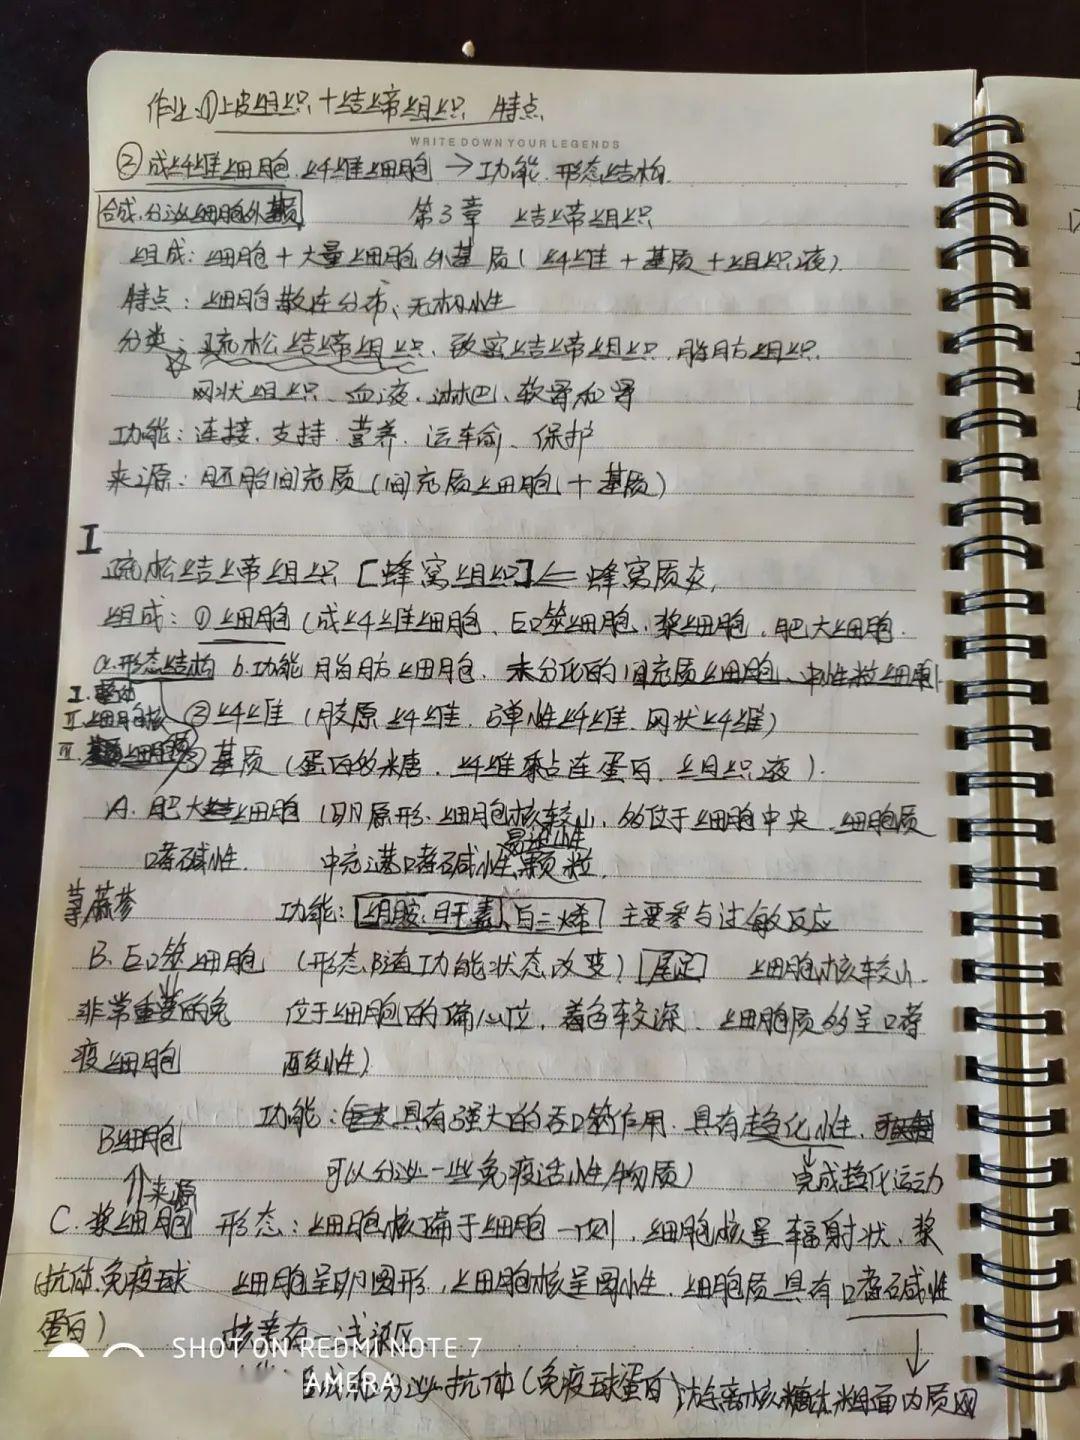 作业:①上皮组织+结缔组织 特点
WRITE DOWN YOUR LEGENDS
②成纤维细胞、纤维细胞→功能、形态结构
合成、分泌细胞外基质 第3章 结缔组织
组成:细胞+大量细胞外基质(纤维+基质+组织液)
特点:细胞散在分布、无极性
分类:疏松结缔组织、致密结缔组织、脂肪组织、
网状组织、血液、淋巴、软骨和骨
功能:连接、支持、营养、运输、保护
来源:胚胎间充质(间充质细胞+基质)
I
疏松结缔组织[蜂窝组织]⇐蜂窝质炎,
组成:①细胞(成纤维细胞、巨噬细胞、浆细胞、肥大细胞、
a.形态结构 b.功能 脂肪细胞、未分化的间充质细胞、中性粒细胞
I.
II.细胞核 ②纤维(胶原纤维、弹性纤维、网状纤维)
III. ③基质(蛋白多糖、纤维粘连蛋白、组织液).
A. 肥大细胞 (卵圆形、细胞核较小、多位于细胞中央、细胞质
易溶性
嗜碱性. 中充满嗜碱性颗粒.
荨麻疹 功能:组胺、肝素、白三烯 主要参与过敏反应
B. 巨噬细胞 (形态、随功能状态改变)[尾足] 细胞核较小、
非常重要的免 位于细胞的偏心位,着色较深、细胞质多呈嗜
疫细胞 酸性)
功能:具有强大的吞噬作用、具有趋化性、
B细胞 可以分泌一些免疫活性物质) 完成趋化运动
⇑来源
C. 浆细胞 形态:细胞核偏于细胞一侧,细胞核呈辐射状、浆
(抗体、免疫球 细胞呈卵圆形,细胞核呈圆性、细胞质具有嗜碱性
蛋白) 核旁有一浅染区
SHOT ON REDMI NOTE 7
AI DUAL CAMERA
合成和分泌抗体(免疫球蛋白) 游离核糖体粗面内质网